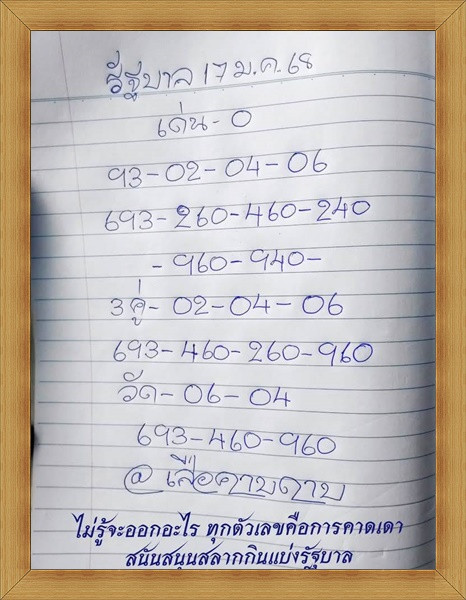 รัฐบาล 17 ม.ค.68
เด่น - 0
93-02-04-06
693-260-460-240
- 960-940-
3 คู่ - 02-04-06
693-460-260-960
วัด - 06-04
693-460-960
@ เสือคาบดาบ
ไม่รู้จะออกอะไร ทุกตัวเลขคือการคาดเดา
สนันสนุนสลากกินแบ่งรัฐบาล